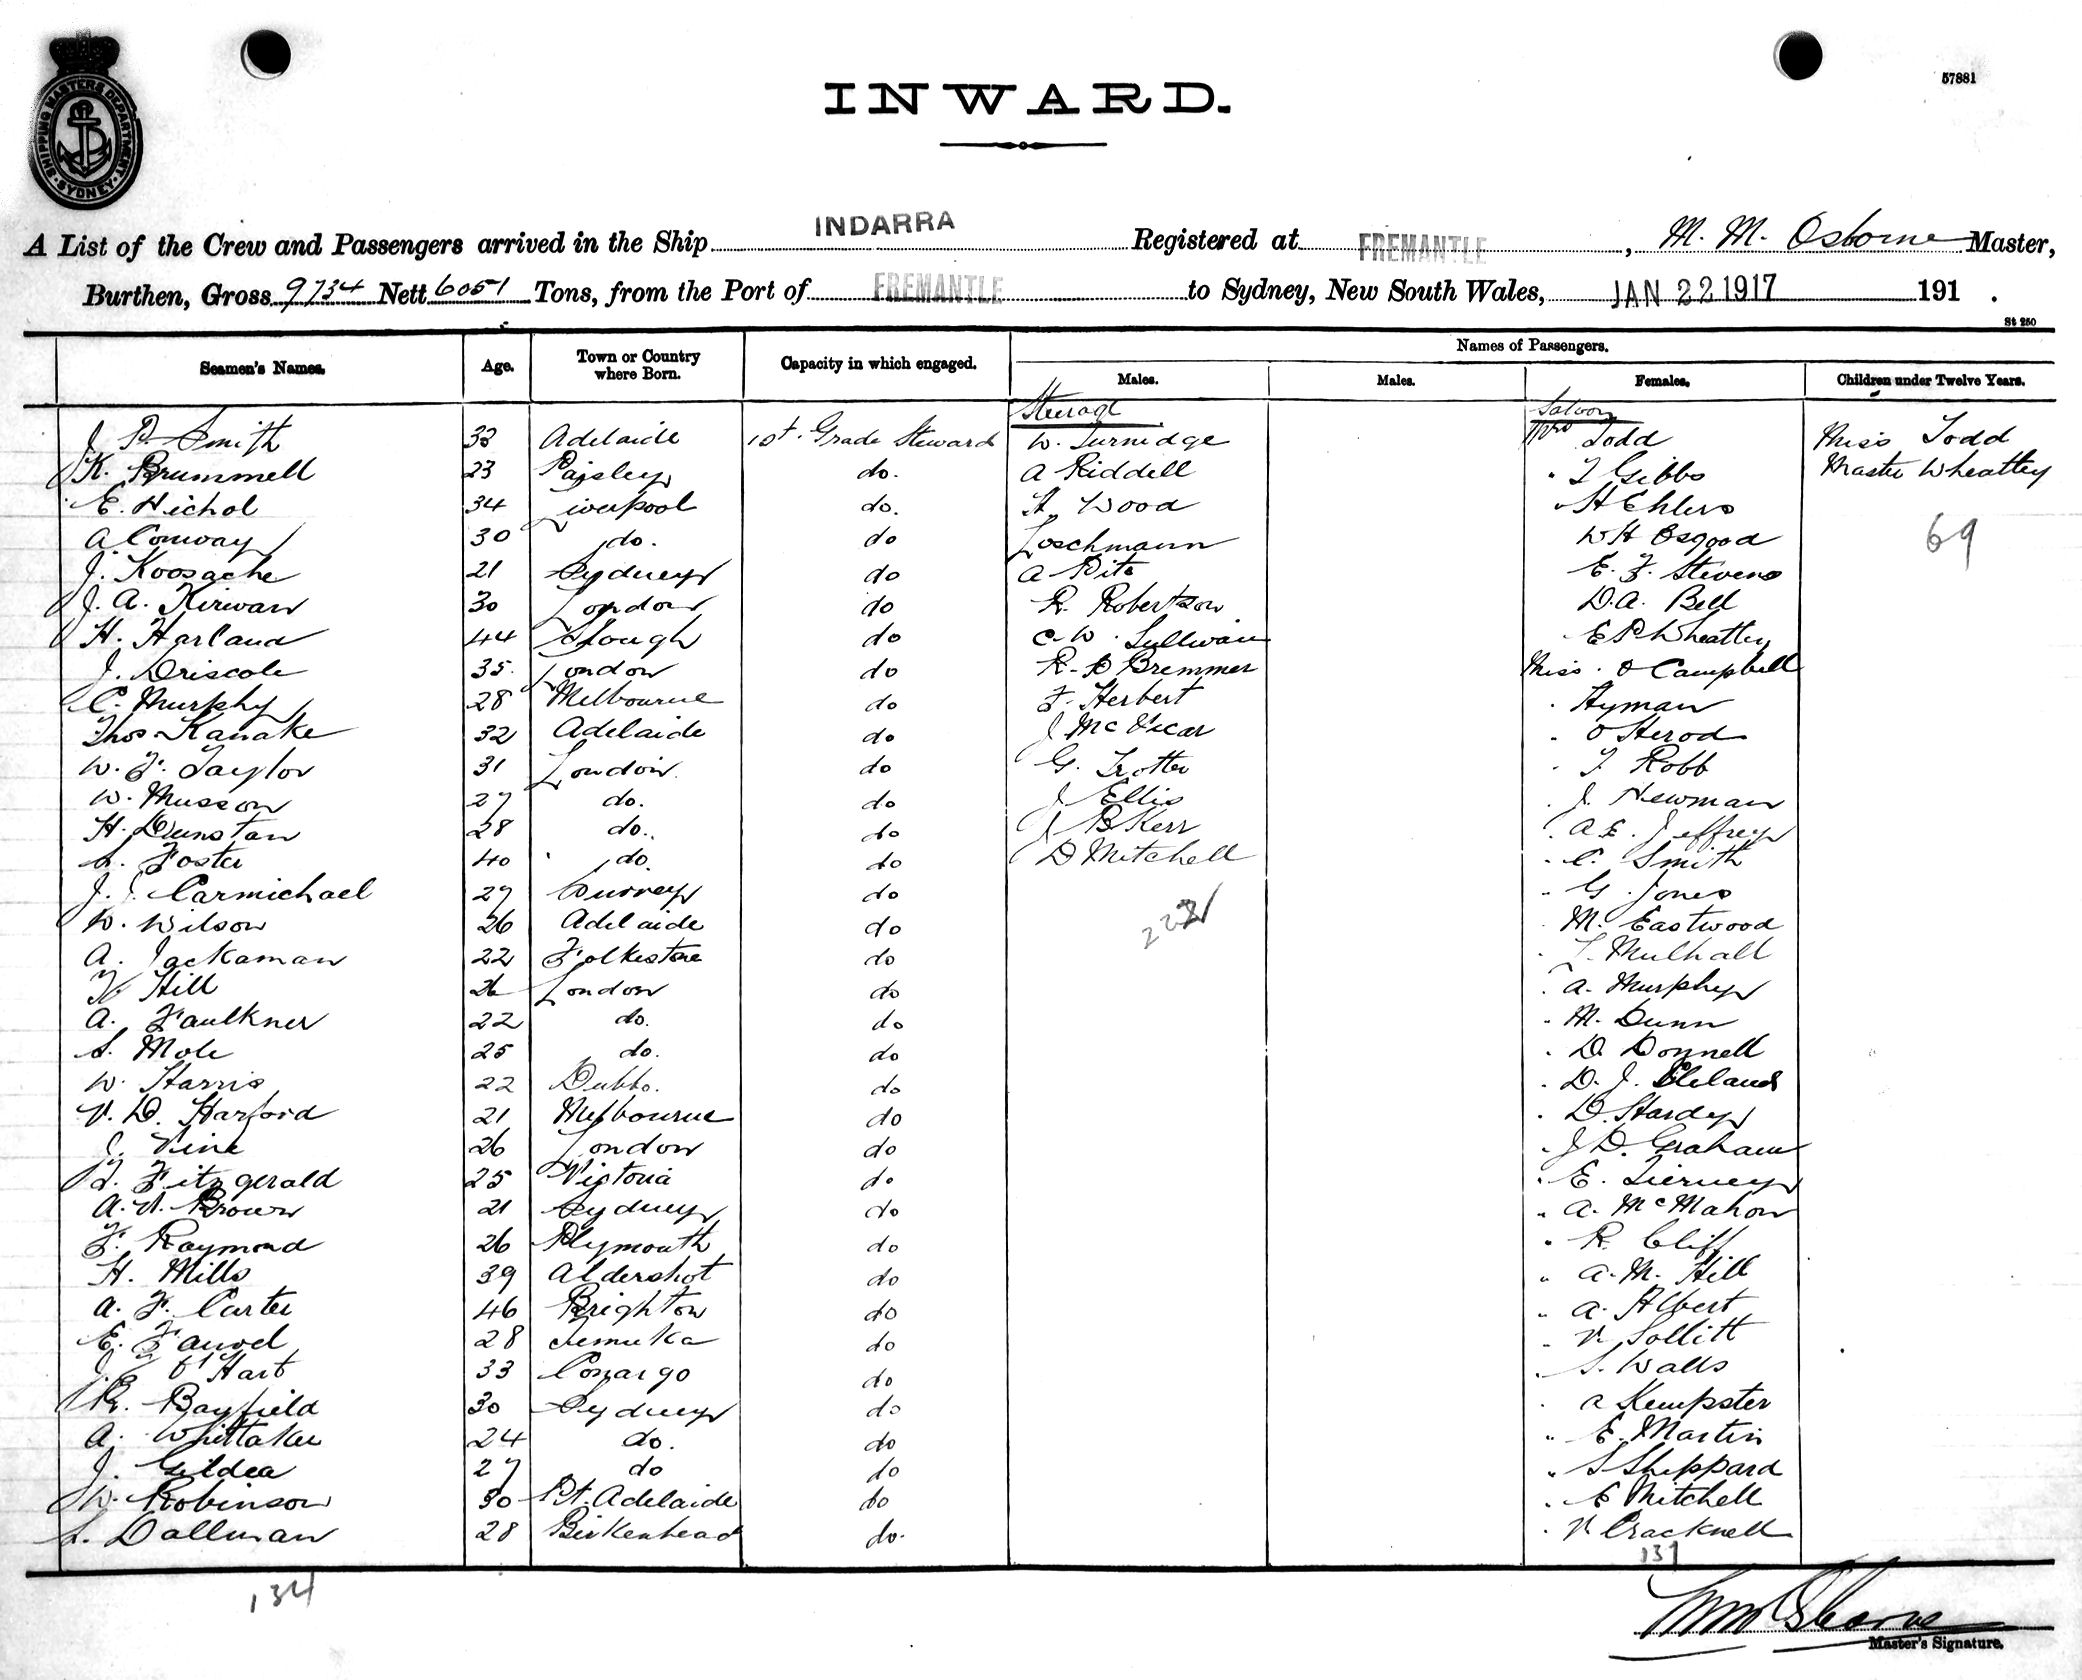 57881
SHIPPING MASTERS DEPARTMENT SYDNEY
INWARD.
A List of the Crew and Passengers arrived in the Ship INDARRA Registered at FREMANTLE, M. M. Osborne Master,
Burthen, Gross 9734 Nett 6051 Tons, from the Port of FREMANTLE to Sydney, New South Wales, JAN 22 1917 191 .
St 250
Seamen's Names. Age. Town or Country where Born. Capacity in which engaged. Names of Passengers.
Males. Males. Females. Children under Twelve Years.
Steerage Saloon
J. P. Smith 33 Adelaide 1st. Grade Steward W. Turnidge Mrs Todd Miss Todd
K. Brummell 23 Paisley do. A Riddell " T Gibbs Master Wheatley
E. Nichol 34 Liverpool do. H. Wood " H Ehlers
A Conway 30 do. do Loschmann W H Osgood 69
J. Koosache 21 Sydney do A Pite E. F. Stevens
J. A. Kirwan 30 London do R. Robertson D. A. Bell
H. Harland 44 Slough do C. W. Sullivan E P Wheatley
J. Driscole 35. London do R. D Bremmer Miss. O Campbell
C. Murphy 28 Melbourne do F. Herbert " Hyman
Thos Kanake 32 Adelaide do J McVicar " O Herod
W. F. Taylor 31 London. do G. Trotter " F Robb
W. Musson 27 do. do J Ellis " J. Newman
H. Dunstan 28 do. do J B Kerr " A E. Jeffrey
S. Foster 40 do. do D Mitchell " C. Smith
J. J. Carmichael 27 Surrey do " G. Jones
W. Wilson 26 Adelaide do " M. Eastwood
A. Jackaman 22 Folkestone do " L. Mulhall
F. Hill 26 London do " A. Murphy
A. Faulkner 22 do. do " M. Dunn
S. Mole 25 do. do " D. Donnell
W. Harris 22 Dubbo. do " D. J. Cleland
V. D. Harford 21 Melbourne do " D. Hardey
J. Vine 26 London do " J D. Graham
T. Fitzgerald 25 Victoria do " E. Tierney
A. V. Brown 21 Sydney do " A. McMahon
F. Raymond 26 Plymouth do " R. Cliff
H. Mills 39 Aldershot do " A. M. Hill
A. F. Carter 46 Brighton do " A. Albert
E. Fauvel 28 Temuka do " V. Sollitt
J. O'Hart 33 Conargo do " S. Walls
R. Bayfield 30 Sydney do " A Kempster
A. Whittaker 24 do. do " E. Martin
J. Gildea 27 do do " S Sheppard
W. Robinson 30 Pt. Adelaide do " E Mitchell
S. Dallman 28 Birkenhead do. " V. Cracknell
137
134
Master's Signature.